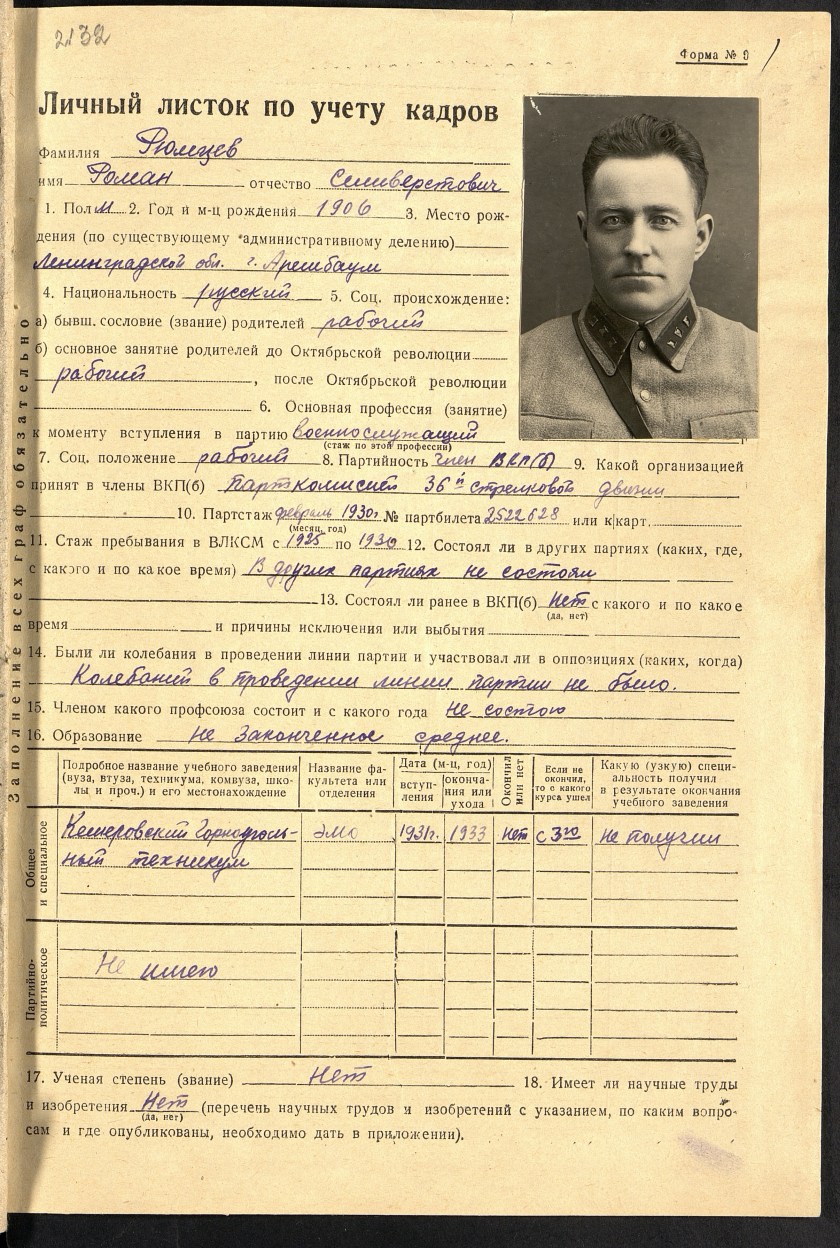 2132
Форма № 9
Личный листок по учету кадров
Фамилия Рюмцев
имя Роман отчество Селиверстович
1. Пол м 2. Год и м-ц рождения 1906 3. Место рож-
дения (по существующему административному делению)
Ленинградской обл. г.
4. Национальность русский 5. Соц. происхождение:
а) бывш. сословие (звание) родителей рабочий
б) основное занятие родителей до Октябрьской революции
рабочий, после Октябрьской революции
6. Основная профессия (занятие)
к моменту вступления в партию военнослужащий
(стаж по этой профессии)
7. Соц. положение рабочий 8. Партийность член ВКП(б) 9. Какой организацией
принят в члены ВКП(б) Парткомиссией 36й стрелковой дивизии
10. Партстаж февраль 1930г. № партбилета 2522628 или к/карт.
(месяц, год)
11. Стаж пребывания в ВЛКСМ с 1925 по 1930 12. Состоял ли в других партиях (каких, где,
с какого и по какое время) В других партиях не состоял
13. Состоял ли ранее в ВКП(б) Нет с какого и по какое
(да, нет)
время и причины исключения или выбытия
14. Были ли колебания в проведении линии партии и участвовал ли в оппозициях (каких, когда)
Колебаний в проведении линии партии не было.
15. Членом какого профсоюза состоит и с какого года Не состою
16. Образование Не законченное среднее.
Заполнение всех граф обязательно
Подробное название учебного заведения (вуза, втуза, техникума, комвуза, шко-
лы и проч.) и его местонахождение
Название фа-
культета или
отделения
Дата (м-ц, год)
вступ-
ления
оконча-
ния или
ухода
Окончил
или нет
Если не
окончил,
то с какого
курса ушел
Какую (узкую) специ-
альность получил
в результате окончания
учебного заведения
Общее
и специальное
Кемеровский Горноуголь- ЭМО 1931г. 1933 Нет с 3го Не получил
ный техникум
Партийно-
политическое
Не имею
17. Ученая степень (звание) Нет 18. Имеет ли научные труды
и изобретения Нет (перечень научных трудов и изобретений с указанием, по каким вопро-
(да, нет)
сам и где опубликованы, необходимо дать в приложении).